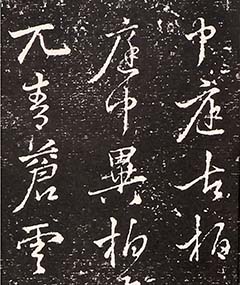 中庭古柏
庭中異柏
兀青蒼雲